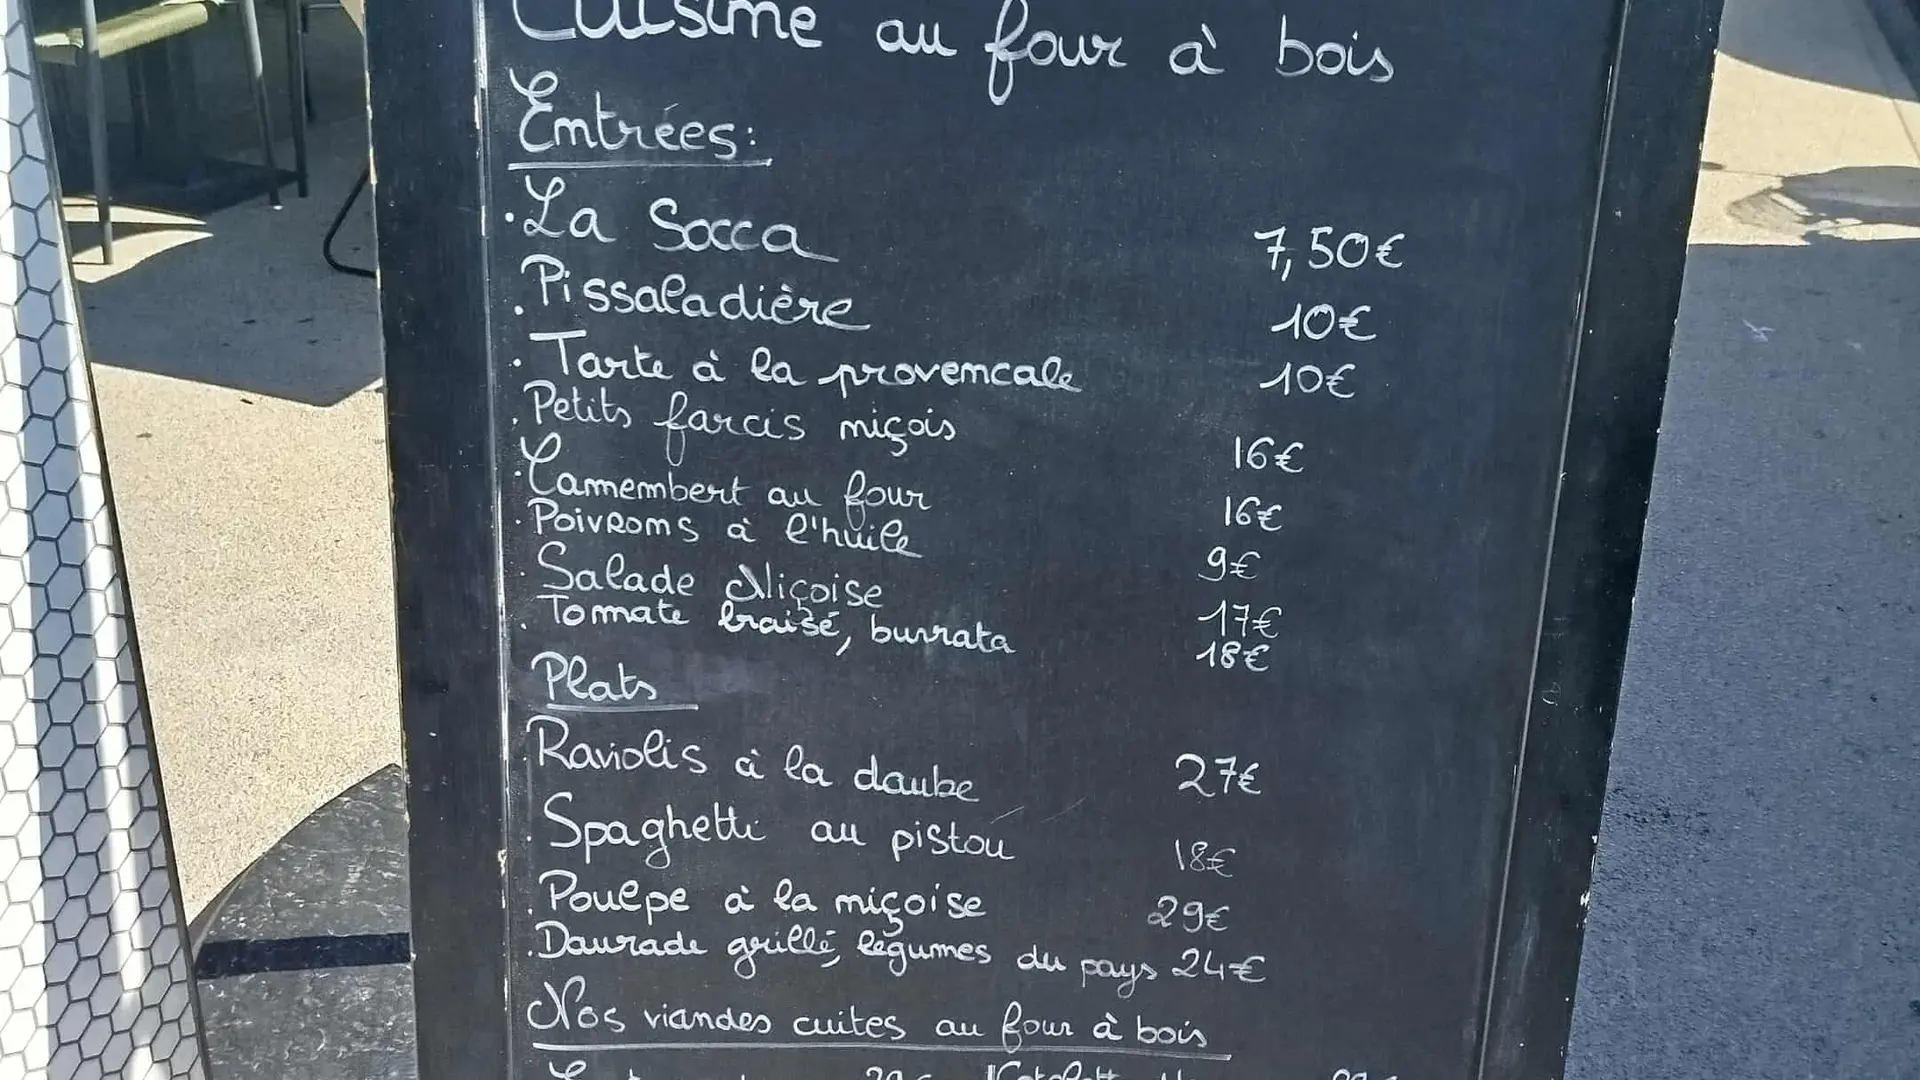 Cuisine au four à bois
Entrées:
.La Socca 7,50€
.Pissaladière 10€
.Tarte à la provencale 10€
.Petits farcis niçois 16€
.Camembert au four 16€
.Poivrons à l'huile 9€
.Salade Niçoise 17€
.Tomate braisé, burrata 18€
Plats
.Raviolis à la daube 27€
.Spaghetti au pistou 18€
.Poulpe à la niçoise 29€
.Daurade grillé, légumes du pays 24€
Nos viandes cuites au four à bois